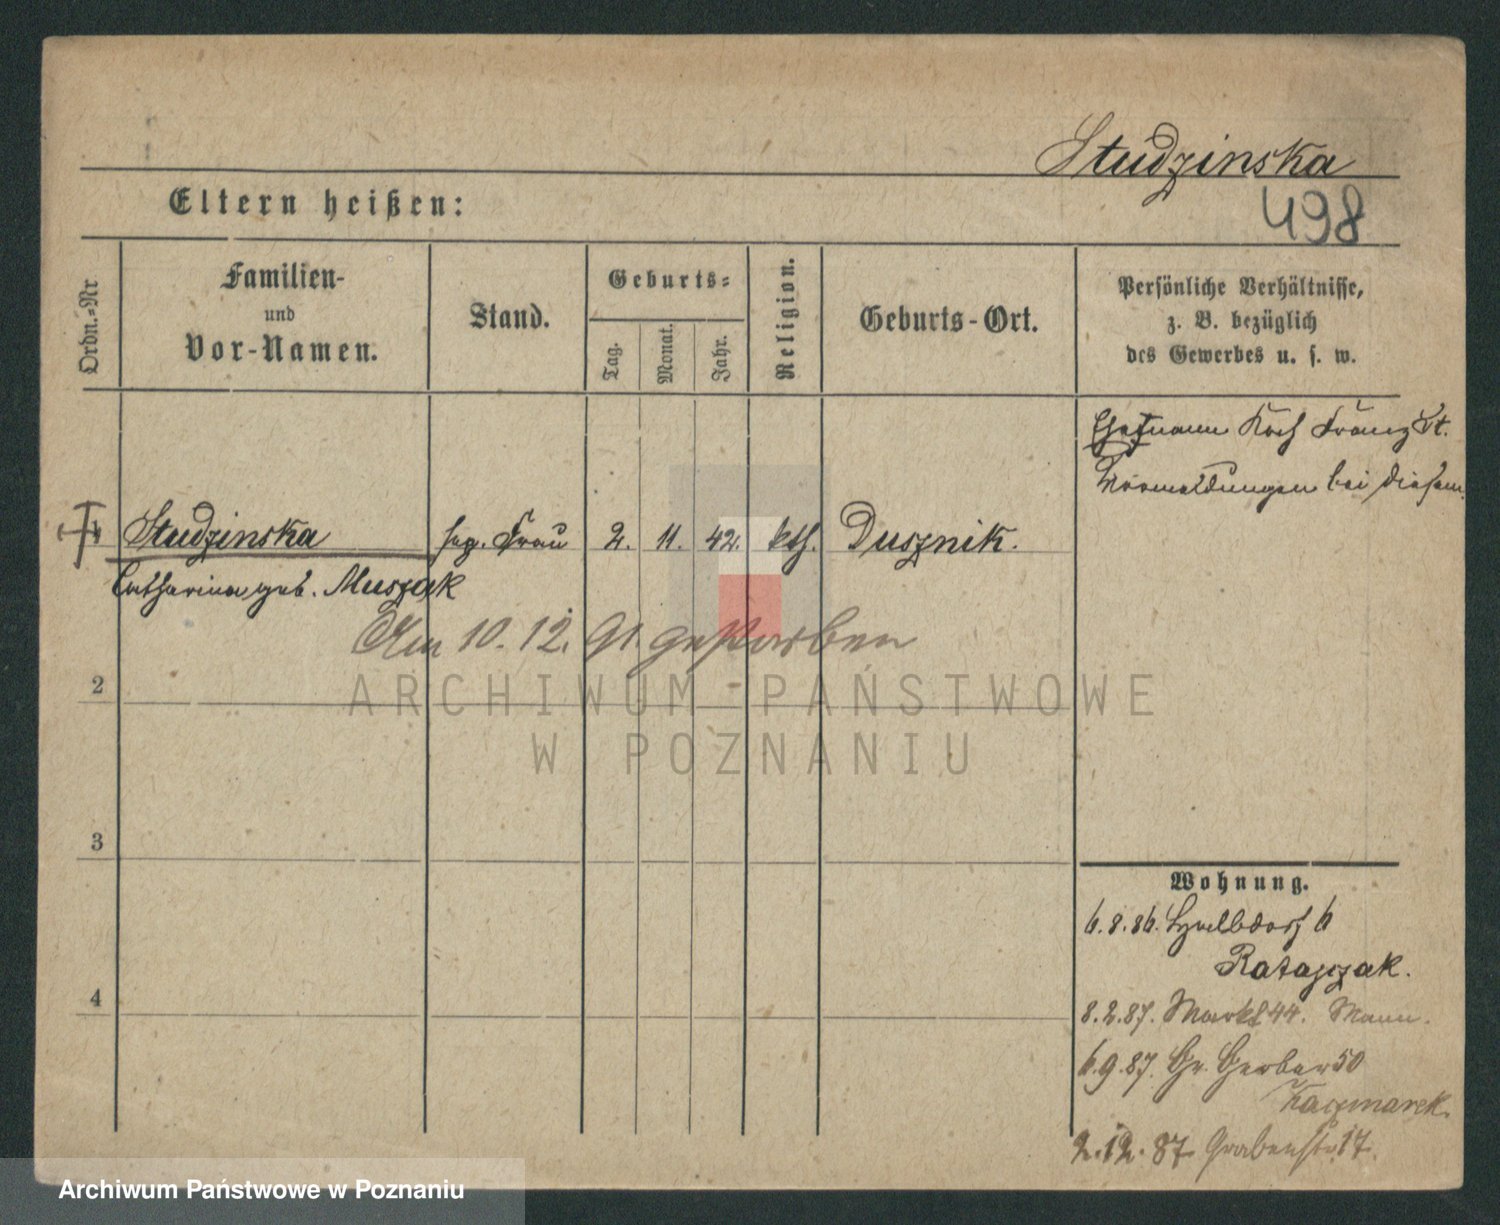 Studzinska
Eltern heißen:
498
Ordn.=Nr
Familien-
und
Vor-Namen.
Stand.
Geburts=
Tag.
Monat.
Jahr.
Religion.
Geburts-Ort.
Persönliche Verhältnisse,
z. B. bezüglich
des Gewerbes u. s. w.
Ehemann Franz St.
Vormeldungen bei diesem.
Studzinska Frau 2. 11. 42. kth. Dusznik.
Catharina geb. Muszak
Am 10. 12. 91. gestorben
2
ARCHIWUM PAŃSTWOWE
W POZNANIU
3
Wohnung.
6.8.86. 6
Ratajczak.
4
8.2.87. Markt 44. Mann.
6.9.87. Gr. Gerber 50
Kaczmarek.
2.12.87 Grabenstr. 17.
Archiwum Państwowe w Poznaniu